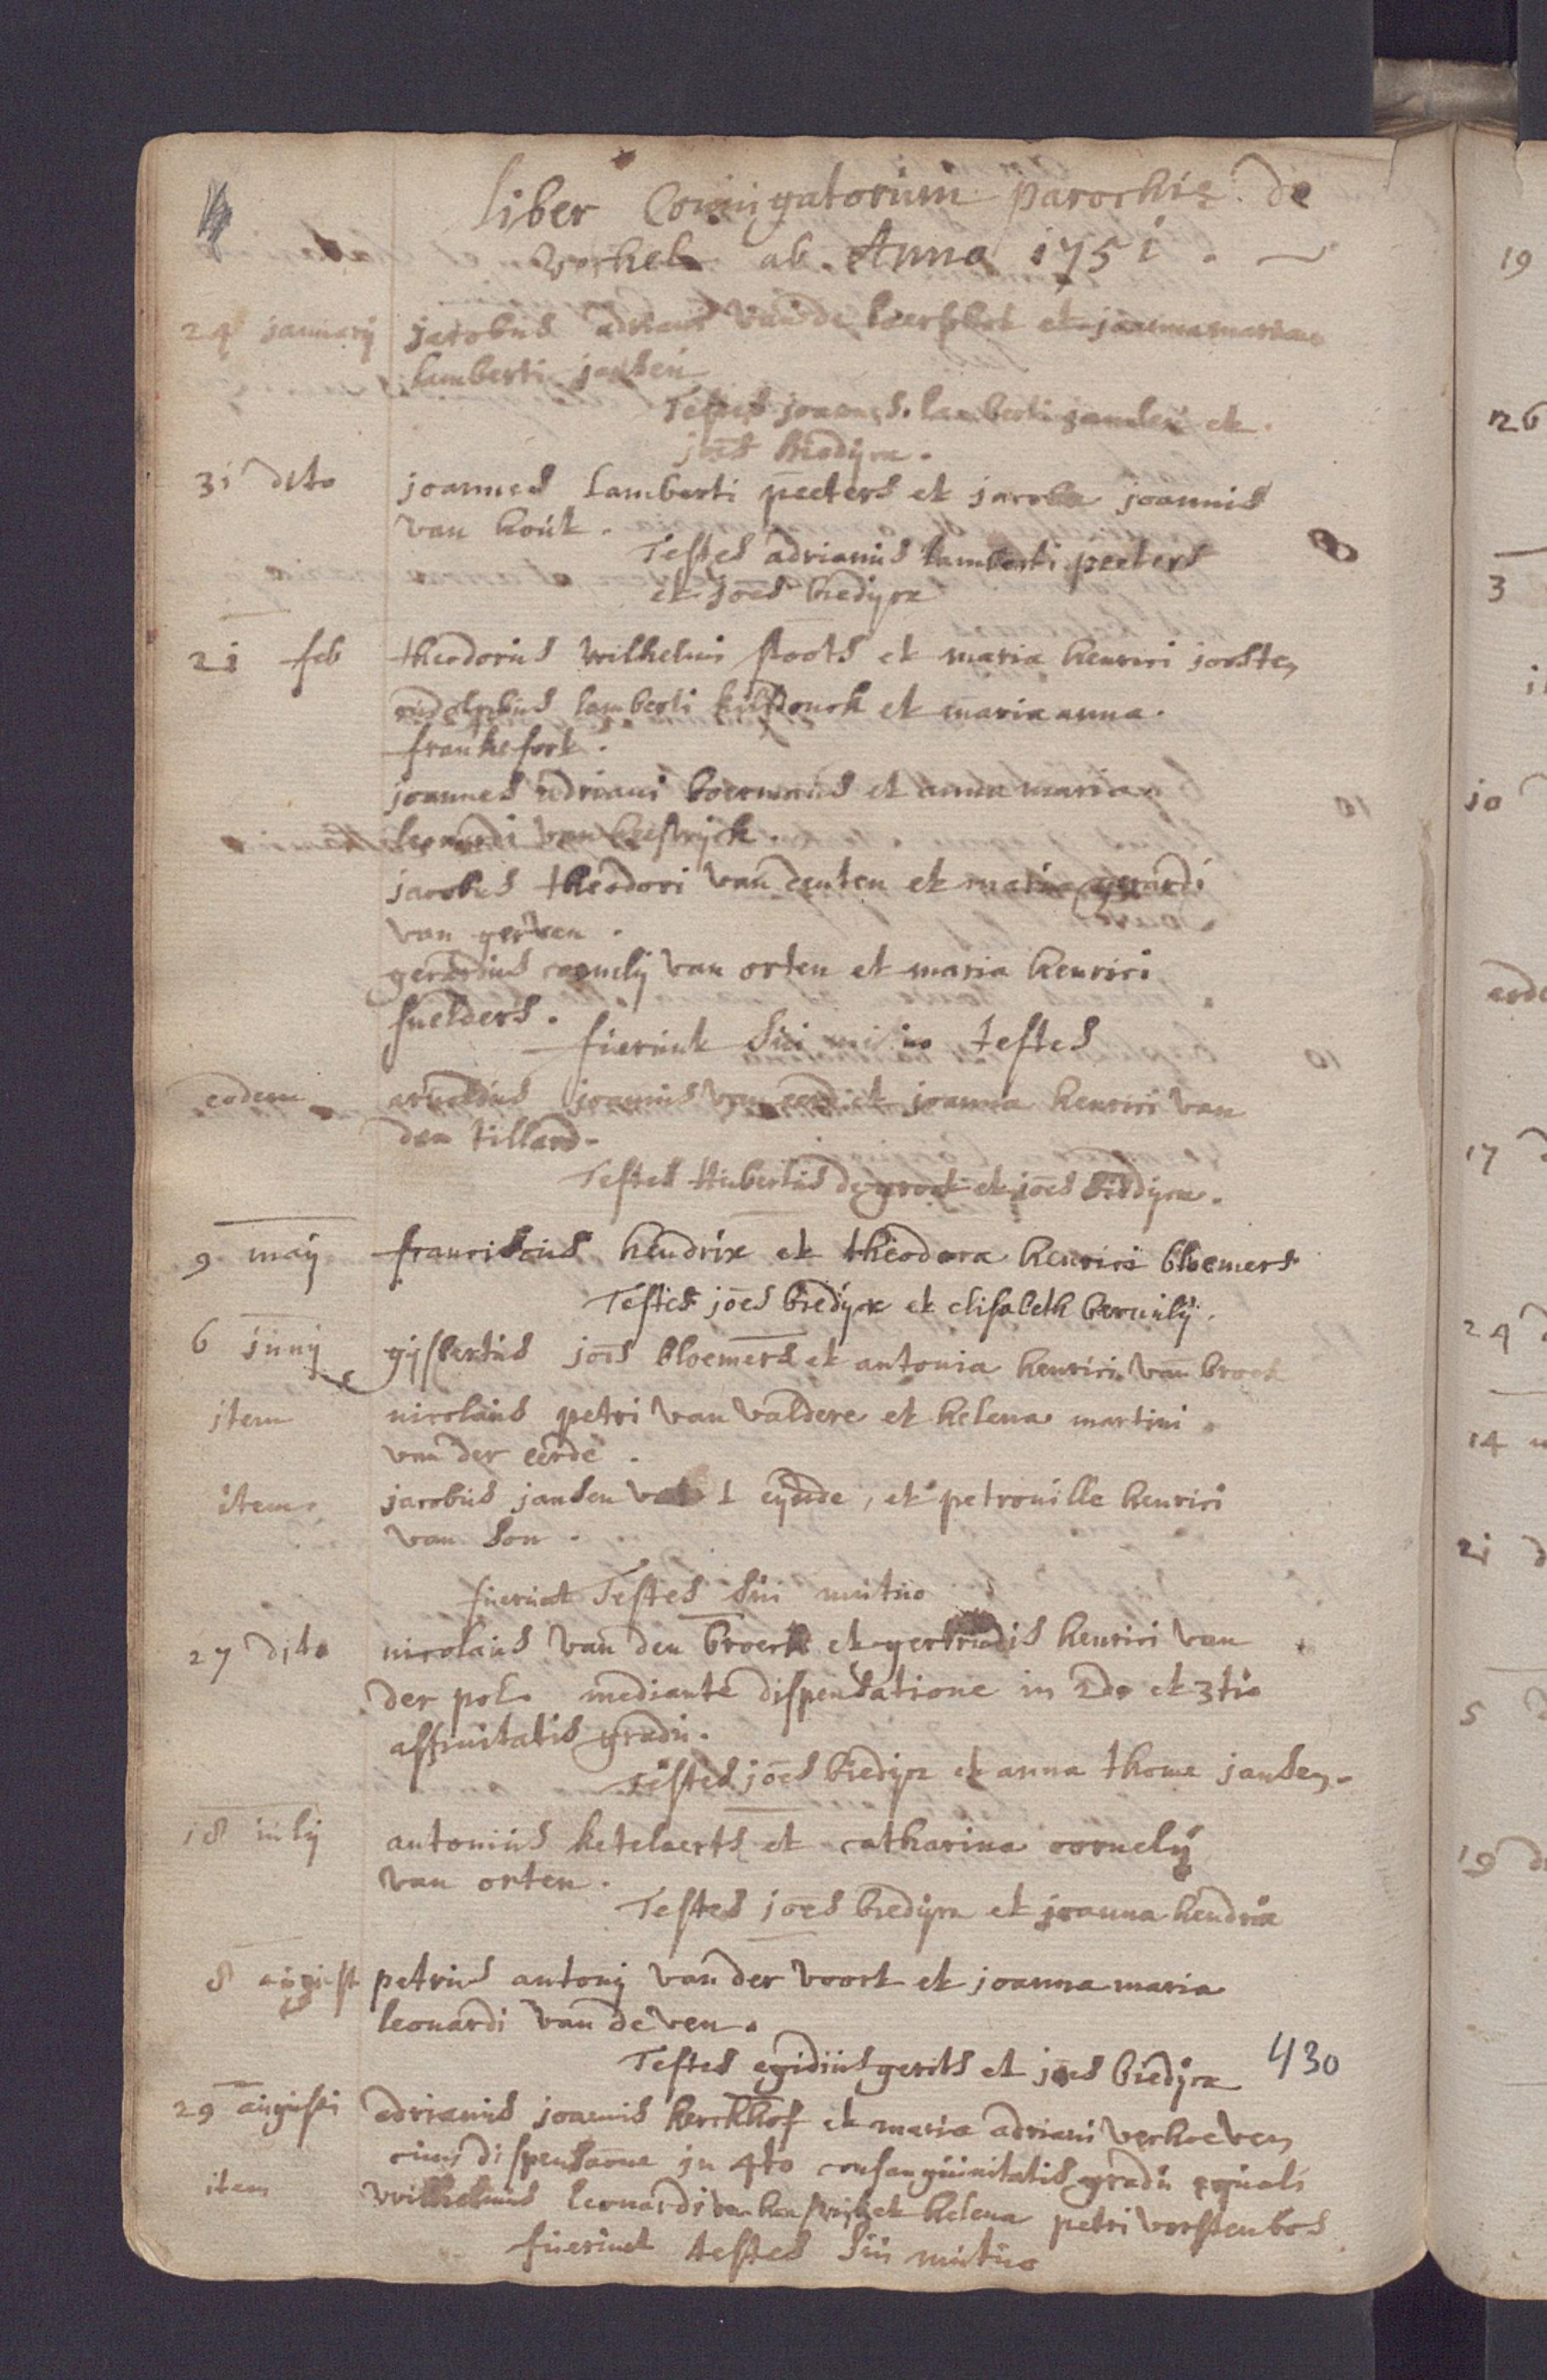 liber Coniugatorum parochiæ de
verhel ab Anno 1751.
24 january jacobus adriani van de laerschot et joanna maria
lamberti jansen
Testes joannes lamberti jansen et
joēs biedijx.
31 dito joannes lamberti peeters et jacoba joannis
van hout.
Testes adrianus lamberti peeters
et joēs biedijx
21 feb theodorus wilhelmi stoots et maria henrici joosten
rudolphus lamberti kuijsdonck et maria anna
frankefort.
joannes adriani boermans et anna maria
leonardi van heeswijck.
jacobus theodori van denten et maria gerardi
van gerven.
gerardus cornely van orten et maria henrici
snelders.
fuerunt sui mutuo testes
eodem arnoldus joannis van eerd et joanna henrici van
den tillard.
Testes Hubertus de groot et joēs biedijx.
9 maÿ franciscus hendrix et theodora henrici bloemers
Testes joēs biedijx et elisabeth
6 junÿ gijsbertus joēs bloemers et antonia henrici van broek
item nicolaus petri van valdere et helena martini
van der eerde.
item jacobus jansen vat t eynde, et petronille henrici
van son.
fuerunt Testes sui mutuo
27 dito nicolaus van den broeck et gertrudis henrici van
der pol. mediante dispensatione in 2do et 3tio
affinitatis gradu.
Testes joēs biedijx et anna thome jansen.
18 july antonius ketelaerts et catharina cornelÿ
van orten.
Testes joēs biedijx et joanna hendrix
8 august petrus antonij van der voort et joanna maria
leonardi van de ven.
Testes egidius gerits et joēs biedijx 430
29 augusti adrianus joannis kerckhof et maria adriani verhoeven
cum dispensaōne in 4to consanguinitatis gradu equali
item wilhelmus leonardi van heeswijk et helena petri vorstenbos
fuerunt testes sui mutuo
19
26
3
10
erde
17
24
14
21
5
19